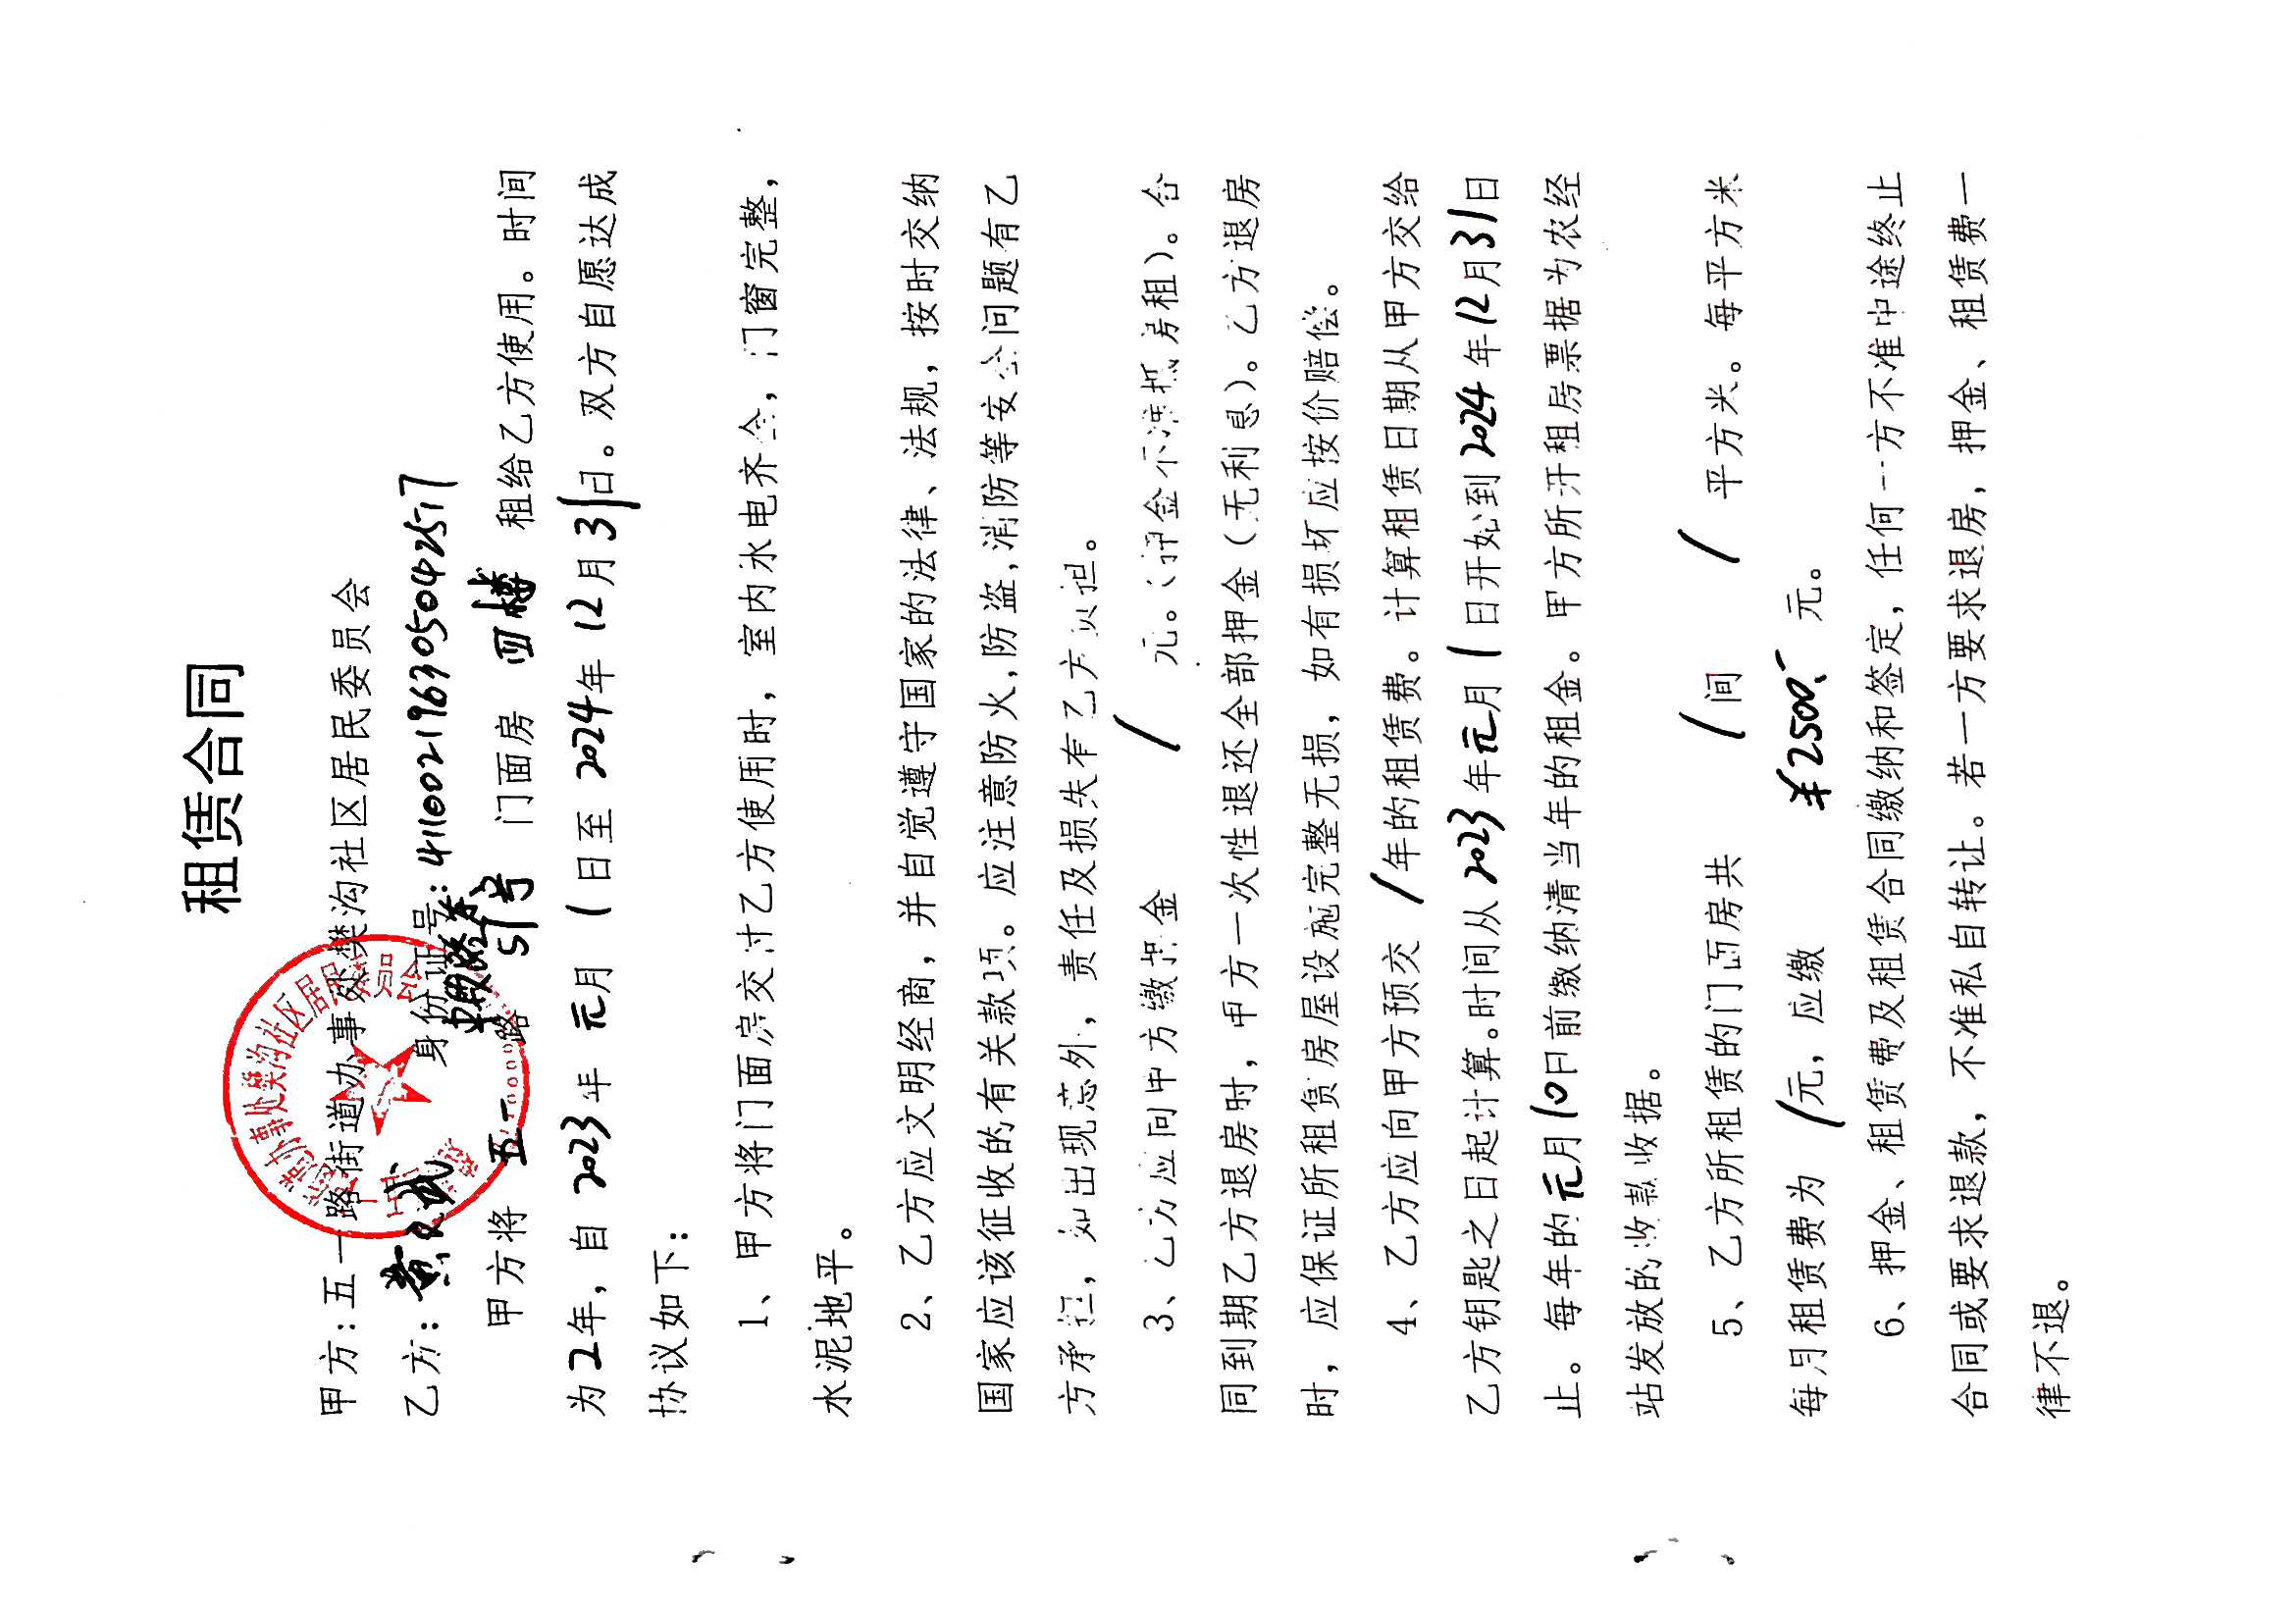 租赁合同
甲方:五一路街道办事处樊沟社区居民委员会
乙方: 身份证号:411002196305042517
甲方将 五一 路 51号 门面房 四楼 租给乙方使用。时间
为2年,自 2023年 元月 1日至 2024年 12月31日。双方自愿达成
协议如下:
1、甲方将门面房交付乙方使用时,室内水电齐全,门窗完整,
水泥地平。
2、乙方应文明经商,并自觉遵守国家的法律、法规,按时交纳
国家应该征收的有关款项。应注意防火,防盗,消防等安全问题有乙
方承担,如出现意外,责任及损失有乙方负担。
3、乙方应向甲方缴押金 / 元。(押金不准抵房租)。合
同到期乙方退房时,甲方一次性退还全部押金(无利息)。乙方退房
时,应保证所租赁房屋设施完整无损,如有损坏应按价赔偿。
4、乙方应向甲方预交 /年的租赁费。计算租赁日期从甲方交给
乙方钥匙之日起计算。时间从 2023 年元月 1 日开始到 2024 年12月31日
止。每年的元月10日前缴纳清当年的租金。甲方所开租房票据为农经
站发放的收款收据。
5、乙方所租赁的门面房共 /间 / 平方米。每平方米
每月租赁费为 /元,应缴 ¥2500. 元。
6、押金、租赁费及租赁合同缴纳和签定,任何一方不准中途终止
合同或要求退款,不准私自转让。若一方要求退房,押金、租赁费一
律不退。